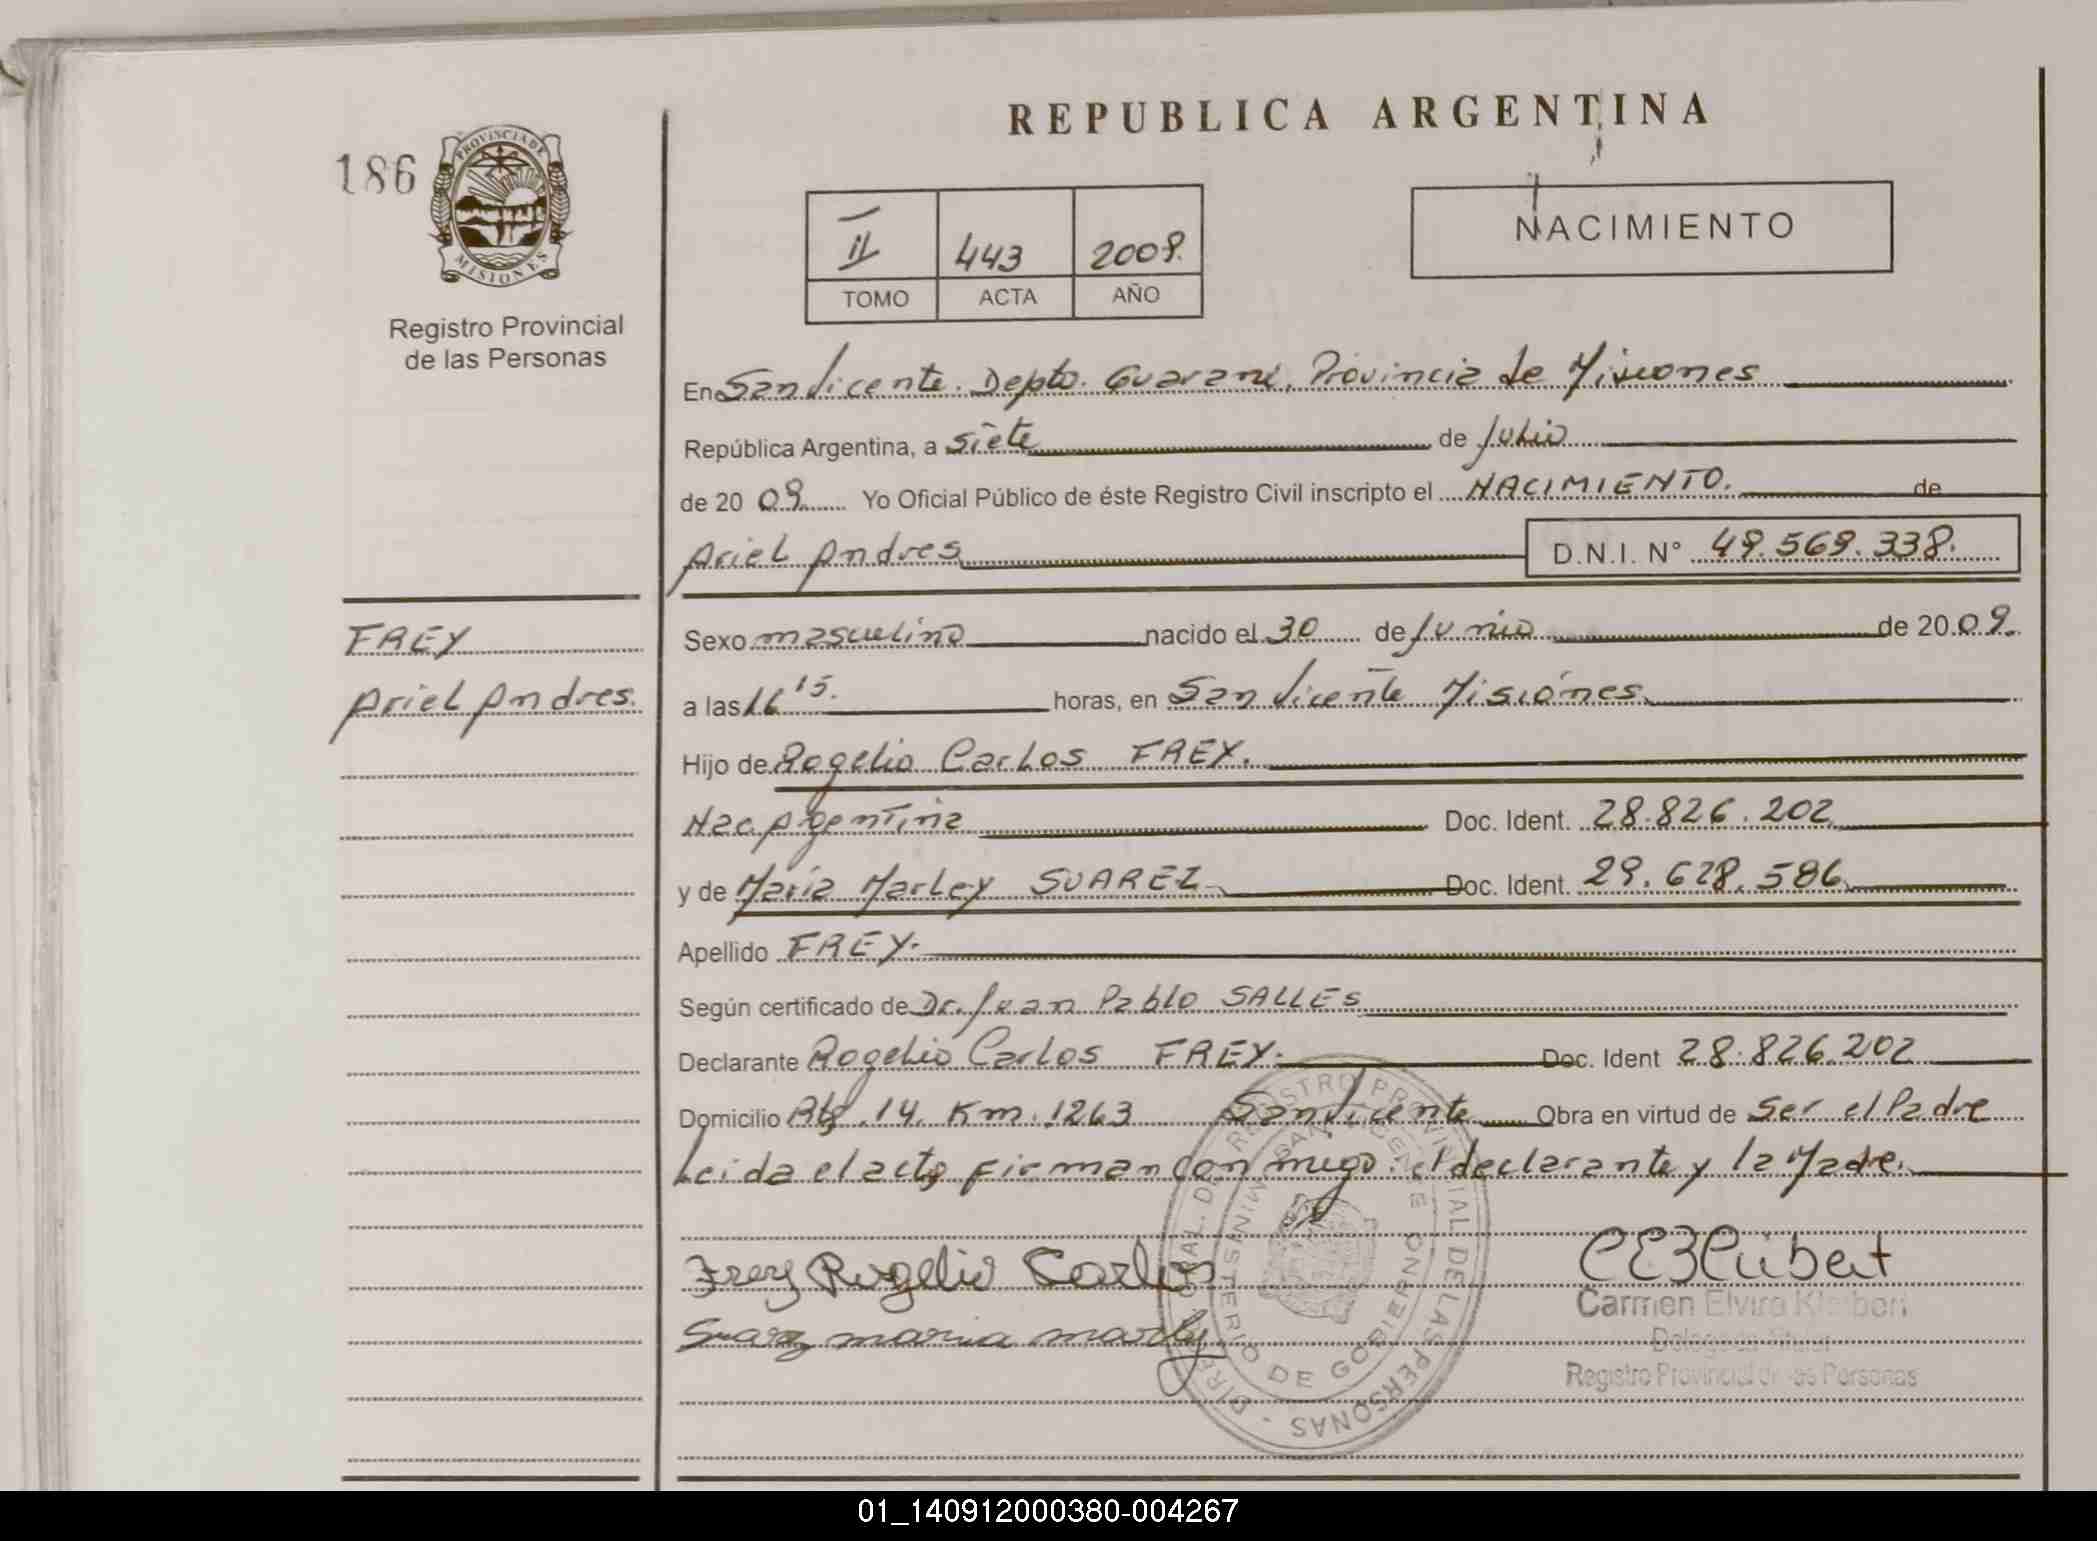 REPUBLICA ARGENTINA
186
PROVINCIA DE
MISIONES
Registro Provincial
de las Personas
II 443 2009.
TOMO ACTA AÑO
NACIMIENTO
En San Vicente. Depto. Guaraní, Provincia de Misiones
República Argentina, a siete de Julio
de 20 09 Yo Oficial Público de éste Registro Civil inscripto el NACIMIENTO. de
Ariel Andres D.N.I. N° 49.569.338.
FREY
Ariel Andres.
Sexo masculino nacido el 30 de Junio de 20 09.
a las 16 15. horas, en San Vicente Misiones
Hijo de Rogelio Carlos FREY.
Nac. Argentina Doc. Ident. 28.826.202
y de María Marley SUAREZ Doc. Ident. 29.628.586
Apellido FREY.
Según certificado de Dr. Juan Pablo SALLES
Declarante Rogelio Carlos FREY. Doc. Ident 28.826.202
Domicilio 14. Km. 1263 San Vicente Obra en virtud de Ser el Padre
Leida el acta firman con migo. el declarante y la Madre.
Frey Rogelio Carlos
Suarez maria marly
Carmen Elvira
Registro Provincial de las Personas
DIRECCION GENERAL DEL REGISTRO PROVINCIAL DE LAS PERSONAS
MINISTERIO DE GOBIERNO
SAN VICENTE
01_140912000380-004267